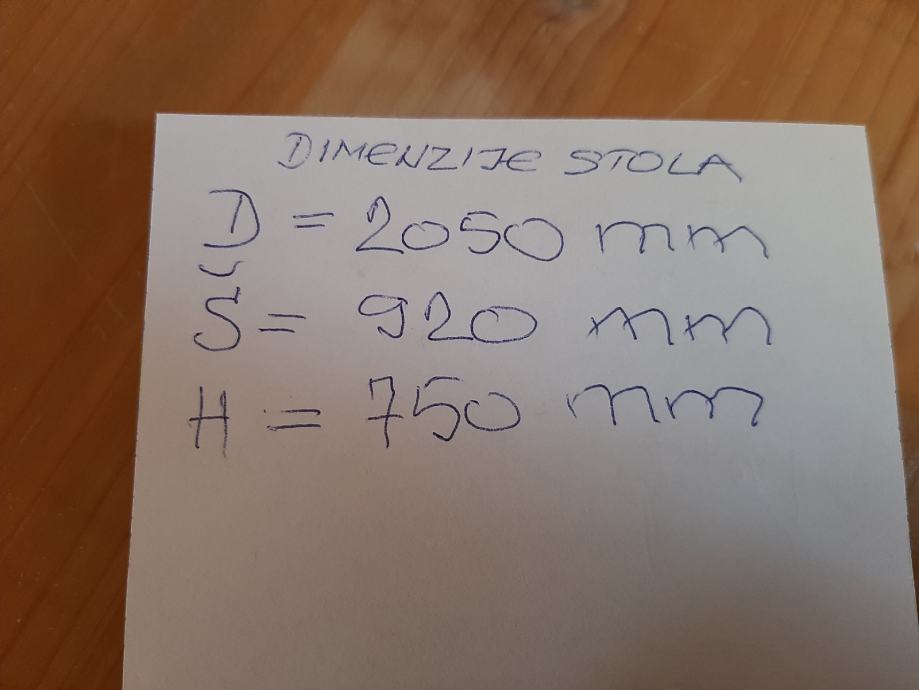 DIMENZIJE STOLA
D = 2050 mm
Š = 920 mm
H = 750 mm